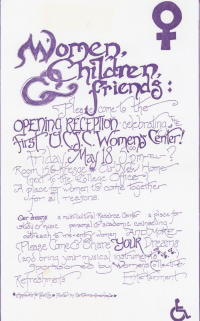 Women,
Children,
& friends:
Please come to the
OPENING RECEPTION celebrating the
first U.C.S.C. Women's Center!
Friday, May 18
Our New Home
(next to the College Office)
A place for women to come together
for all reasons.
Our dreams: a multicultural Resource Center a place for
study & music personal & academic counseling
outreach to re-entry women AND More-
Please Come & Share YOUR Dreams
(and bring your musical instruments
Sponsored by Women's Collective
Refreshments Entertainment